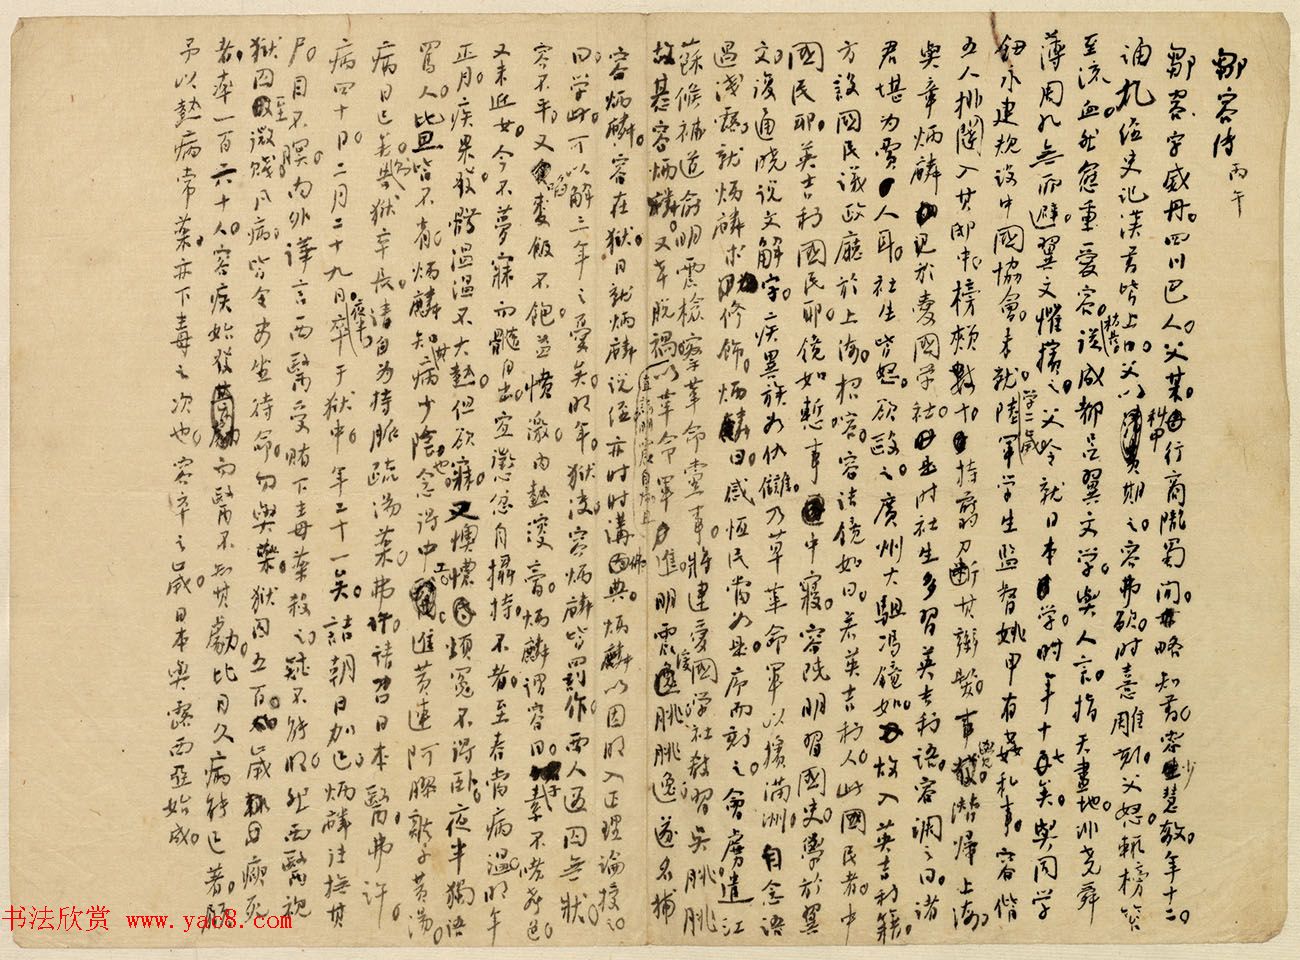 鄒容傳 丙午
鄒容字威丹。四川巴人。父某。行商隴蜀間。略知書。容少慧敏。年十二。
誦九經史記漢書皆上口。父以科甲期之。容弗欲。時憙雕刻。父怒。輒榜笞
至流血。然愈重愛容。從成都呂翼文學。與人言。指天畫地。非堯舜
薄周孔。無所避。翼文懼。擯之。父令就日本學。時年十七矣。與同學
鈕永建規設中國協會。未就。學二歲。陸軍學生監督姚甲有姦私事。容偕
五人排闥入其邸中。榜頰數十。持翦刀斷其辮髮。事覺。潛歸上海。
與章炳麟見於愛國學社。是時社生多習英吉利語。容調之曰。諸
君堪為賈人耳。社生皆怒。欲毆之。廣州大駔馮鏡如。故入英吉利籍。
方設國民議政廳於上海。招容。容詰鏡如曰。若英吉利人。此國民者。中
國民耶。英吉利國民耶。鏡如慙。事中寢。容既明習國史。學於翼
文。復通曉說文解字。疾異族如仇讎。乃草革命軍以擯滿洲。自念語
過淺露。就炳麟求修飾。炳麟曰。感恆民當如是。序而刻之。會虜遣江
蘇候補道俞明震檢察革命黨事。將逮愛國學社教習吳朓。朓
故惎容炳麟。又幸脫禍。以革命軍進明震。朓逸。遂名捕
容炳麟。容在獄。日就炳麟說經。亦時時講佛典。炳麟以因明入正理論授之
曰。學此可以解三年之憂矣。明年。獄決。容炳麟皆罰作。西人遇囚無狀。
容不平。又啗麥飯不飽。益憤激。內熱溲膏。炳麟謂容曰。子素不嗜聲色
又未近女。今不夢寐而髓自出。宜懲忿自攝持。不者。至春當病溫。明年
正月。疾果發。體溫溫不大熱。但欲寐。又懊憹煩冤不得臥。夜半獨語
罵人。比旦皆不省。炳麟知其病少陰也。念得中工進黃連阿膠雞子黃湯。
病日已矣。與獄卒長請自為持脈疏湯藥。弗許。請召日本醫。弗許。
病四十日。二月二十九日夜半。卒于獄中。年二十一矣。詰朝日加巳。炳麟往撫其
尸。目不瞑。內外譁言西醫受賄下毒藥殺之。疑不能明。然西醫視
獄囚至微賤。凡病。皆令安坐待命。勿與藥。獄囚五百。歲瘐死
者。率一百六十人。容疾始發。而醫不知其劇。比日久病能已著。顧
予以熱病常藥。亦下毒之次也。容卒之歲。日本與露西亞始成。
书法欣赏 www.yac8.com